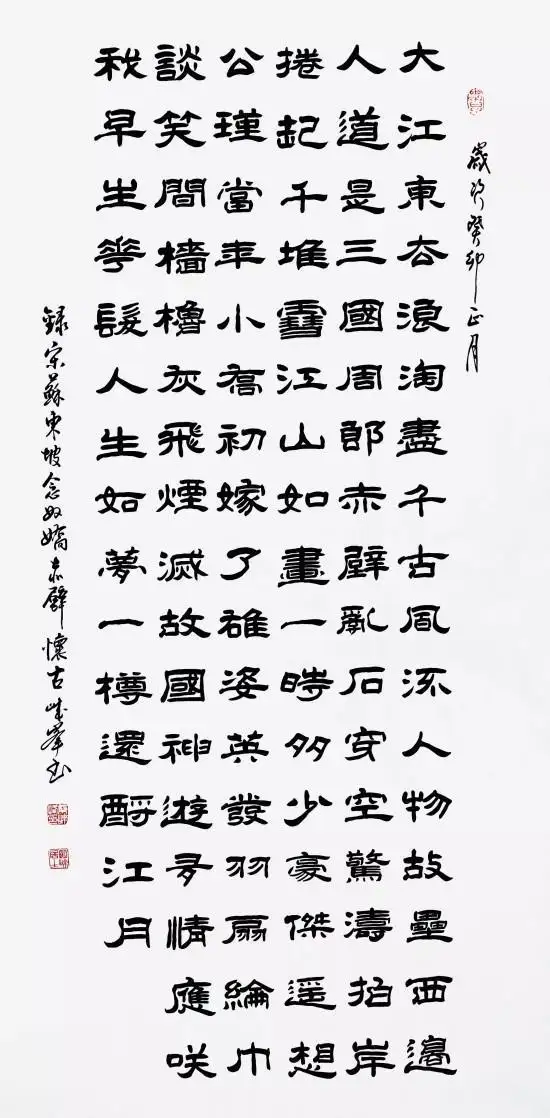 歲次癸卯正月
大江東去浪淘盡千古風流人物故壘西邊
人道是三國周郎赤壁亂石穿空驚濤拍岸
捲起千堆雪江山如畫一時多少豪傑遥想
公瑾當年小喬初嫁了雄姿英發羽扇綸巾
談笑間檣櫓灰飛煙滅故國神遊多情應咲
我早生華髮人生如夢一樽還酹江月
錄宋蘇東坡念奴嬌赤壁懷古峯書